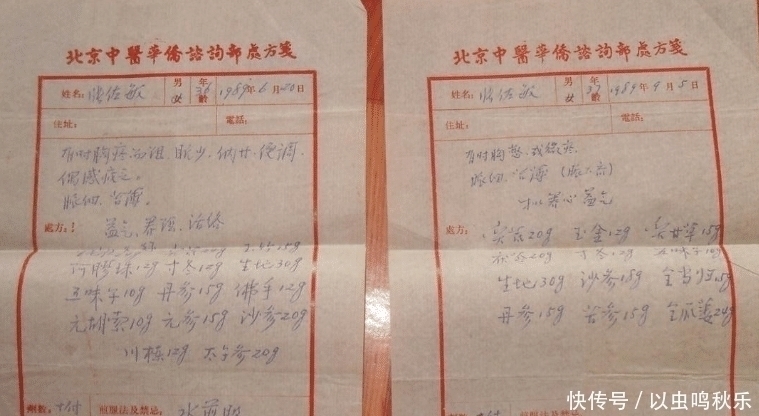 北京中醫華僑諮詢部處方箋
姓名: 張佐敏 男 女 年齡 36 1989年6月20日
住址: 電話:
有时胸疼
仍感疲乏
脉细 苔薄
處方: 益气 养 活络
阿膠珠12g 寸冬12g 生地30g
五味子10g 丹参15g 佛手12g
元胡索10g 元参15g 沙参20g
川楝12g 太子参20g
劑數: 付 煎服法及禁忌: 水煎服
北京中醫華僑諮詢部處方箋
姓名: 張佐敏 男 女 年齡 37 1989年9月5日
住址: 電話:
有时胸憋 或微疼
脉细 苔薄
养心益气
處方: 炙芪20g 玉金12g 炙甘草15g
生地30g 沙参15g 全当归15g
丹参15g 苦参15g 全瓜蒌24g
快传号/以虫鸣秋乐